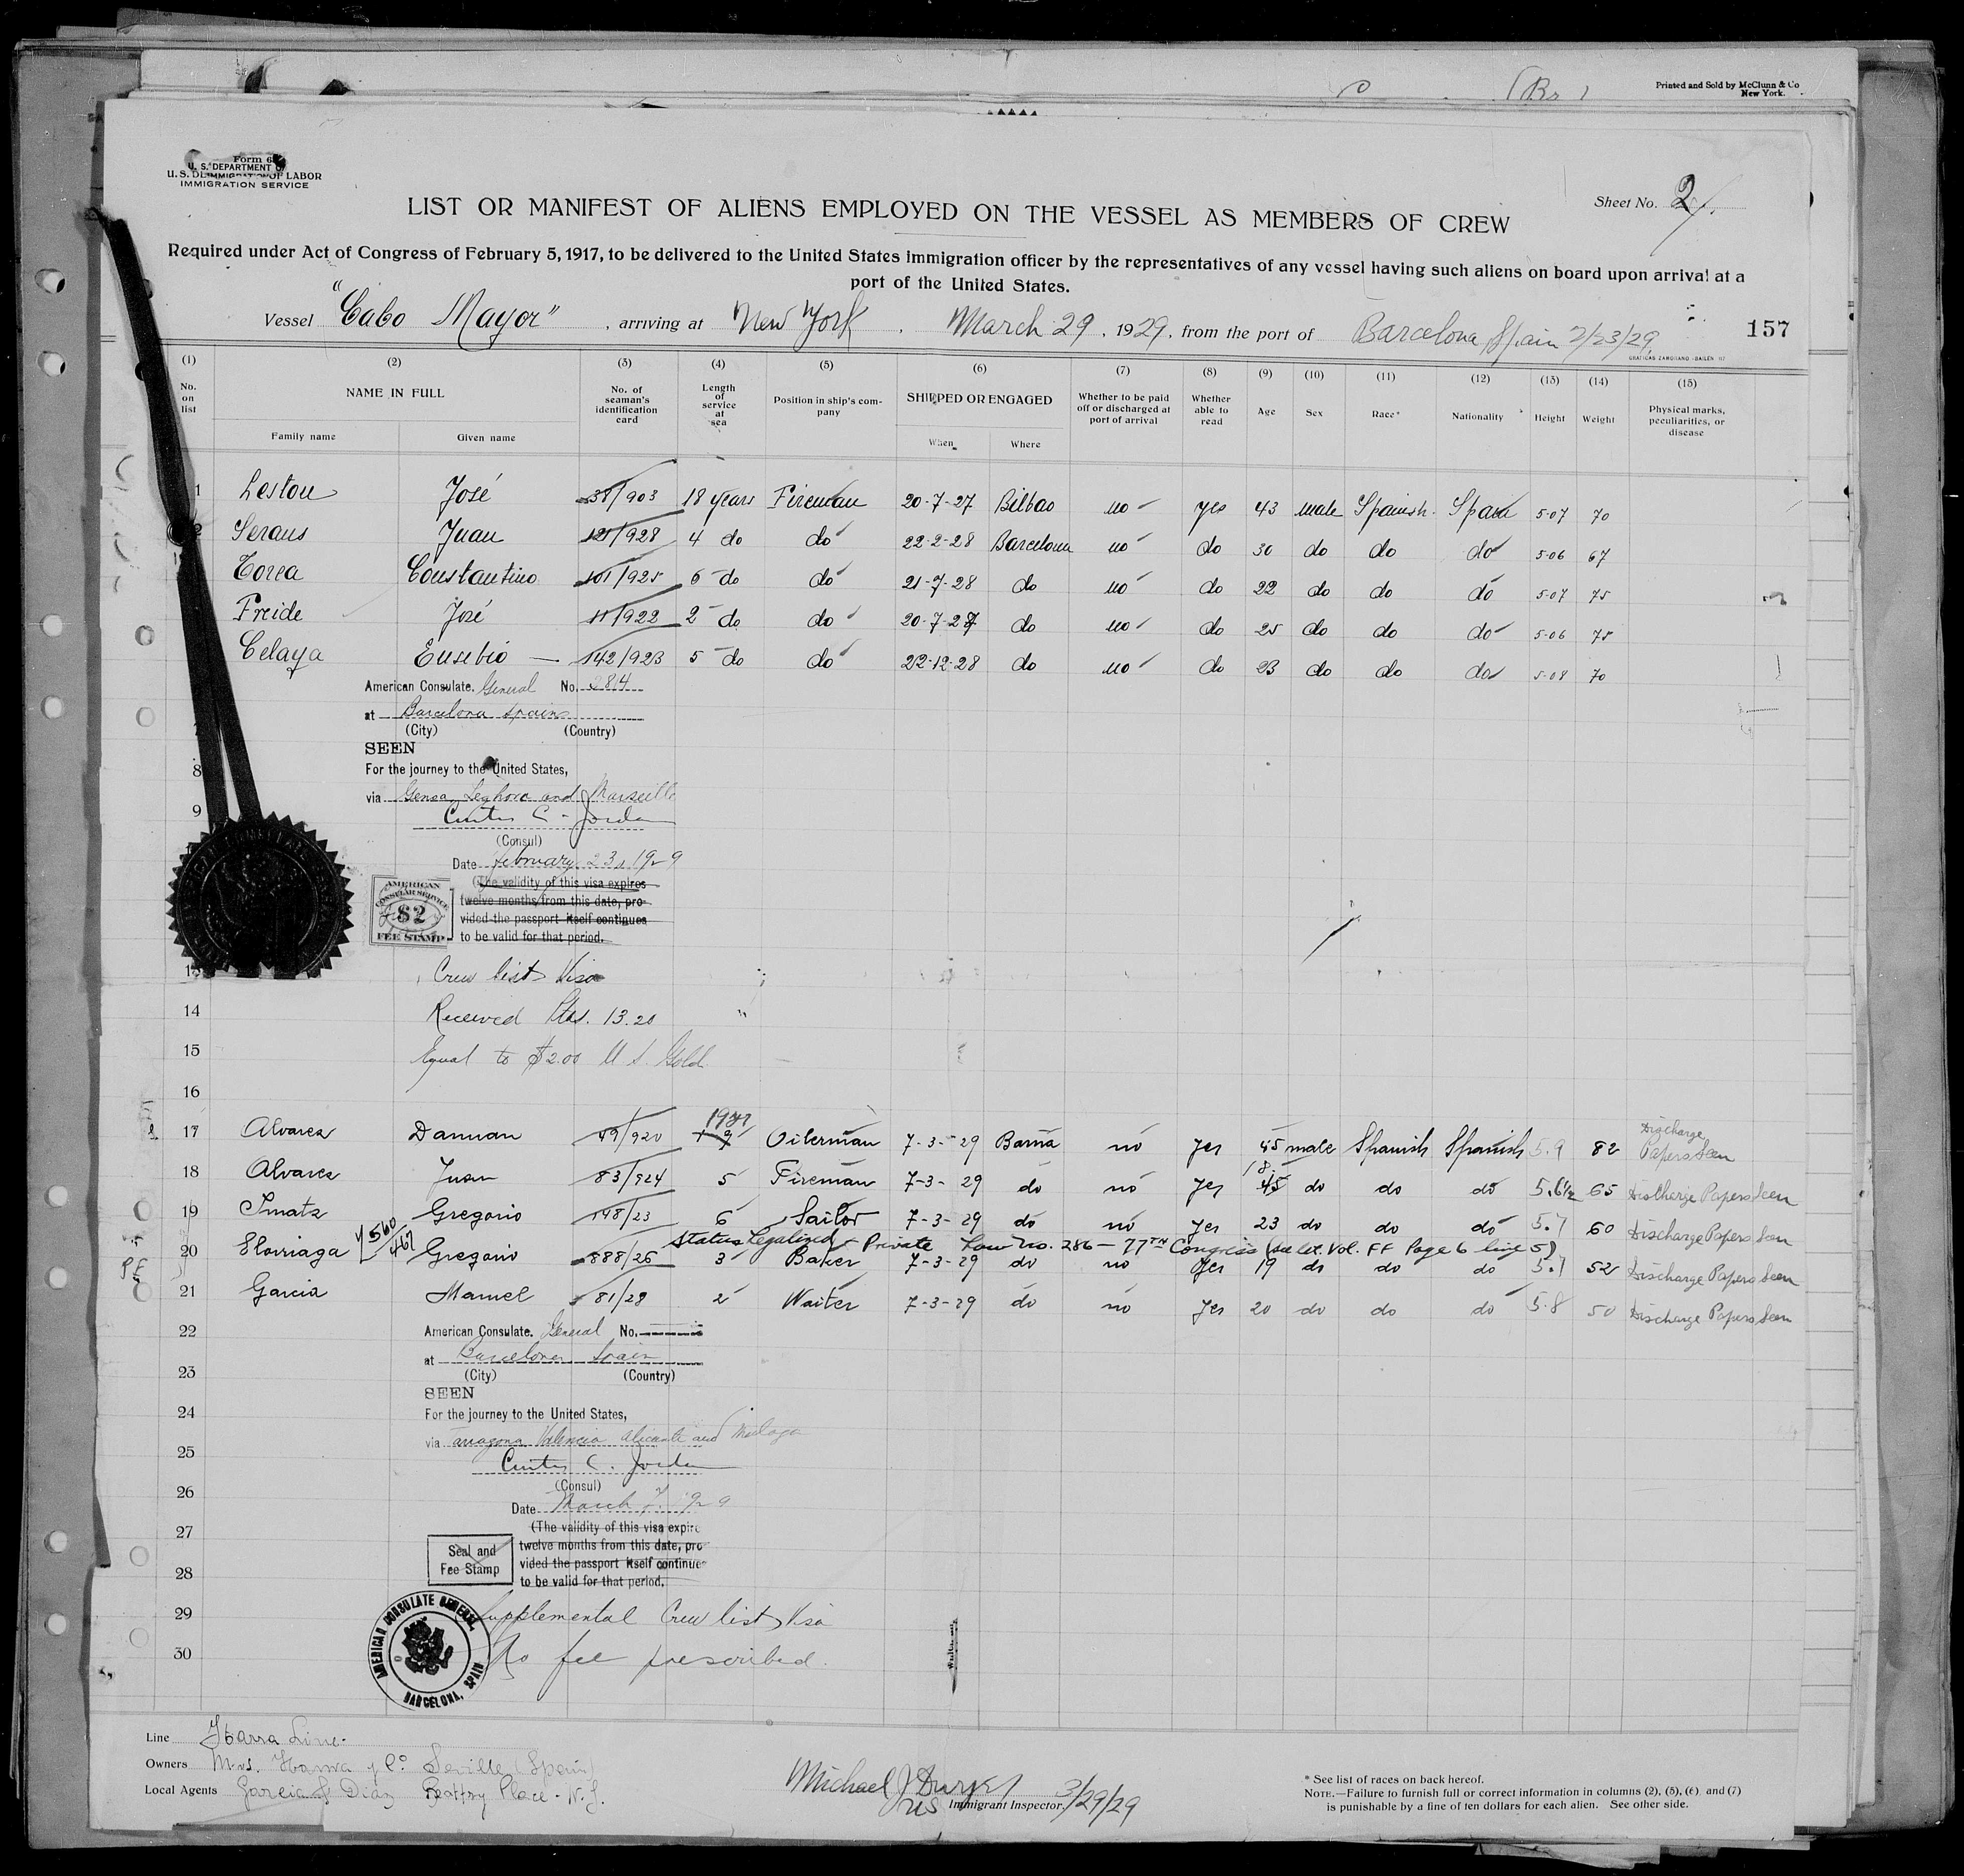 Printed and Sold by McClunn & Co
New York.
Form 6
U. S. DEPARTMENT OF LABOR
IMMIGRATION SERVICE
Sheet No. 2
LIST OR MANIFEST OF ALIENS EMPLOYED ON THE VESSEL AS MEMBERS OF CREW
Required under Act of Congress of February 5, 1917, to be delivered to the United States immigration officer by the representatives of any vessel having such aliens on board upon arrival at a
port of the United States.
Vessel "Cabo Mayor", arriving at New York, March 29, 1929, from the port of Barcelona, Spain 2/23/29
157
(1) No. on list
(2) NAME IN FULL Family name Given name
(3) No. of seaman's identification card
(4) Length of service at sea
(5) Position in ship's company
(6) SHIPPED OR ENGAGED When Where
(7) Whether to be paid off or discharged at port of arrival
(8) Whether able to read
(9) Age
(10) Sex
(11) Race*
(12) Nationality
(13) Height
(14) Weight
(15) Physical marks, peculiarities, or disease
1 Leston José 38/903 18 years Fireman 20-7-27 Bilbao no yes 43 male Spanish Spain 5-07 70
2 Serans Juan 121/928 4 do do 22-2-28 Barcelona no do 30 do do do 5-06 67
Torea Constantino 101/925 6 do do 21-7-28 do no do 22 do do do 5-07 75
Freide José 11/922 2 do do 20-7-27 do no do 25 do do do 5-06 75
Celaya Eusebio — 142/923 5 do do 22-12-28 do no do 23 do do do 5-08 70
American Consulate. General No. 2814
at Barcelona Spain
(City) (Country)
SEEN
For the journey to the United States,
8
via Genoa Leghorn and Marseille
9
Curtis C. Jordan
(Consul)
Date February 23, 1929
(The validity of this visa expires
twelve months from this date, pro-
vided the passport itself continues
to be valid for that period.
AMERICAN CONSULAR SERVICE
$2
FEE STAMP
Crew list Visa
14 Received Ptas. 13.20
15 Equal to $2.00 U.S. Gold
16
1927
17 Alvarez Damian 49/920 Oilerman 7-3-29 Barna no yes 45 male Spanish Spanish 5.9 82 Discharge Papers Seen
18 Alvarez Juan 83/924 5 Fireman 7-3-29 do no yes 18 45 do do do 5.6½ 65 Discharge Papers Seen
19 Imatz Gregorio 148/23 6 Sailor 7-3-29 do no yes 23 do do do 5.7 60 Discharge Papers Seen
560/467 Status Legalized Private Law No. 286 — 77TH Congress (see let. Vol. FF Page 6 line 5)
20 Elorriaga Gregorio 888/26 3 Baker 7-3-29 do no yes 19 do do do 5.7 52 Discharge Papers Seen
21 Garcia Manuel 81/28 2 Waiter 7-3-29 do no yes 20 do do do 5.8 50 Discharge Papers Seen
22 American Consulate. General No.
at Barcelona Spain
23 (City) (Country)
SEEN
24 For the journey to the United States,
via Tarragona Valencia Alicante and Malaga
25
Curtis C. Jordan
(Consul)
26
Date March 7, 1929
27 (The validity of this visa expire
twelve months from this date, pro
vided the passport itself continue
28 to be valid for that period.
Seal and
Fee Stamp
29 Supplemental Crew list Visa
30 No fee prescribed.
AMERICAN CONSULATE GENERAL
BARCELONA, SPAIN
Line Ybarra Line
Owners Mrs. Ybarra y Co. Seville (Spain)
Local Agents Garcia & Diaz Battry Place - N.Y.
US Immigrant Inspector. 3/29/29
* See list of races on back hereof.
NOTE.—Failure to furnish full or correct information in columns (2), (5), (6) and (7)
is punishable by a fine of ten dollars for each alien. See other side.